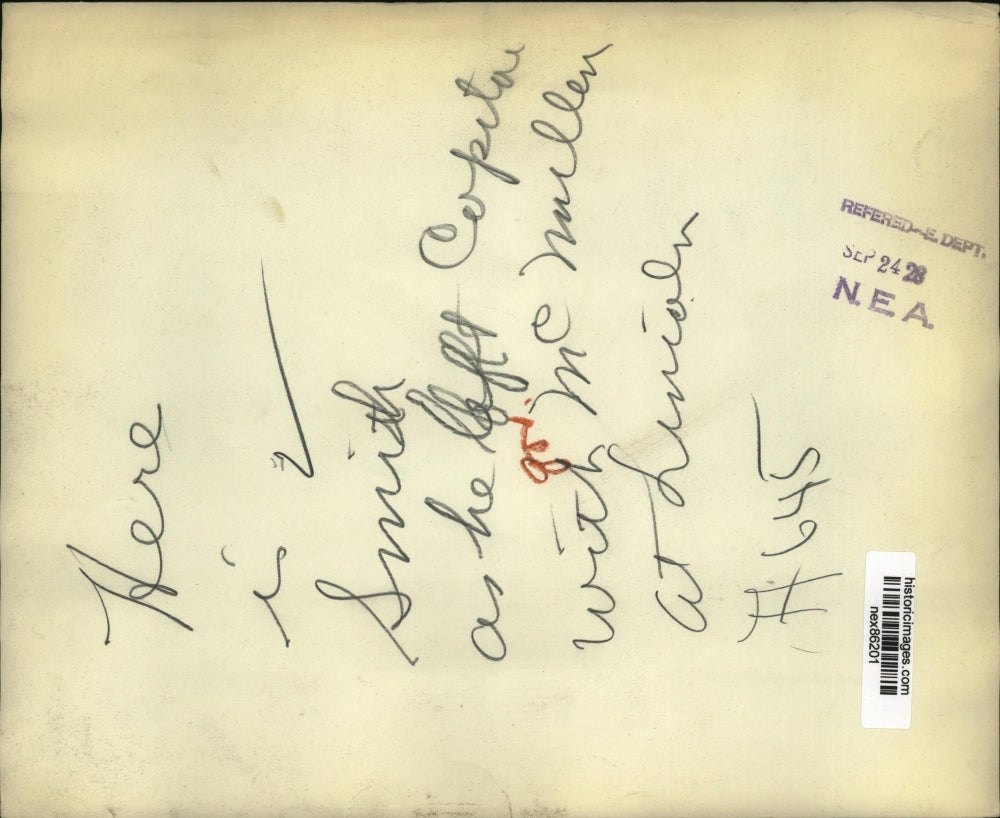 Here
is
Smith
as he left Capitol
with Mc Mullen
at Lincoln
#645
REFERED-E. DEPT.
SEP 24 28
N. E. A.
historicimages.com
nex86201